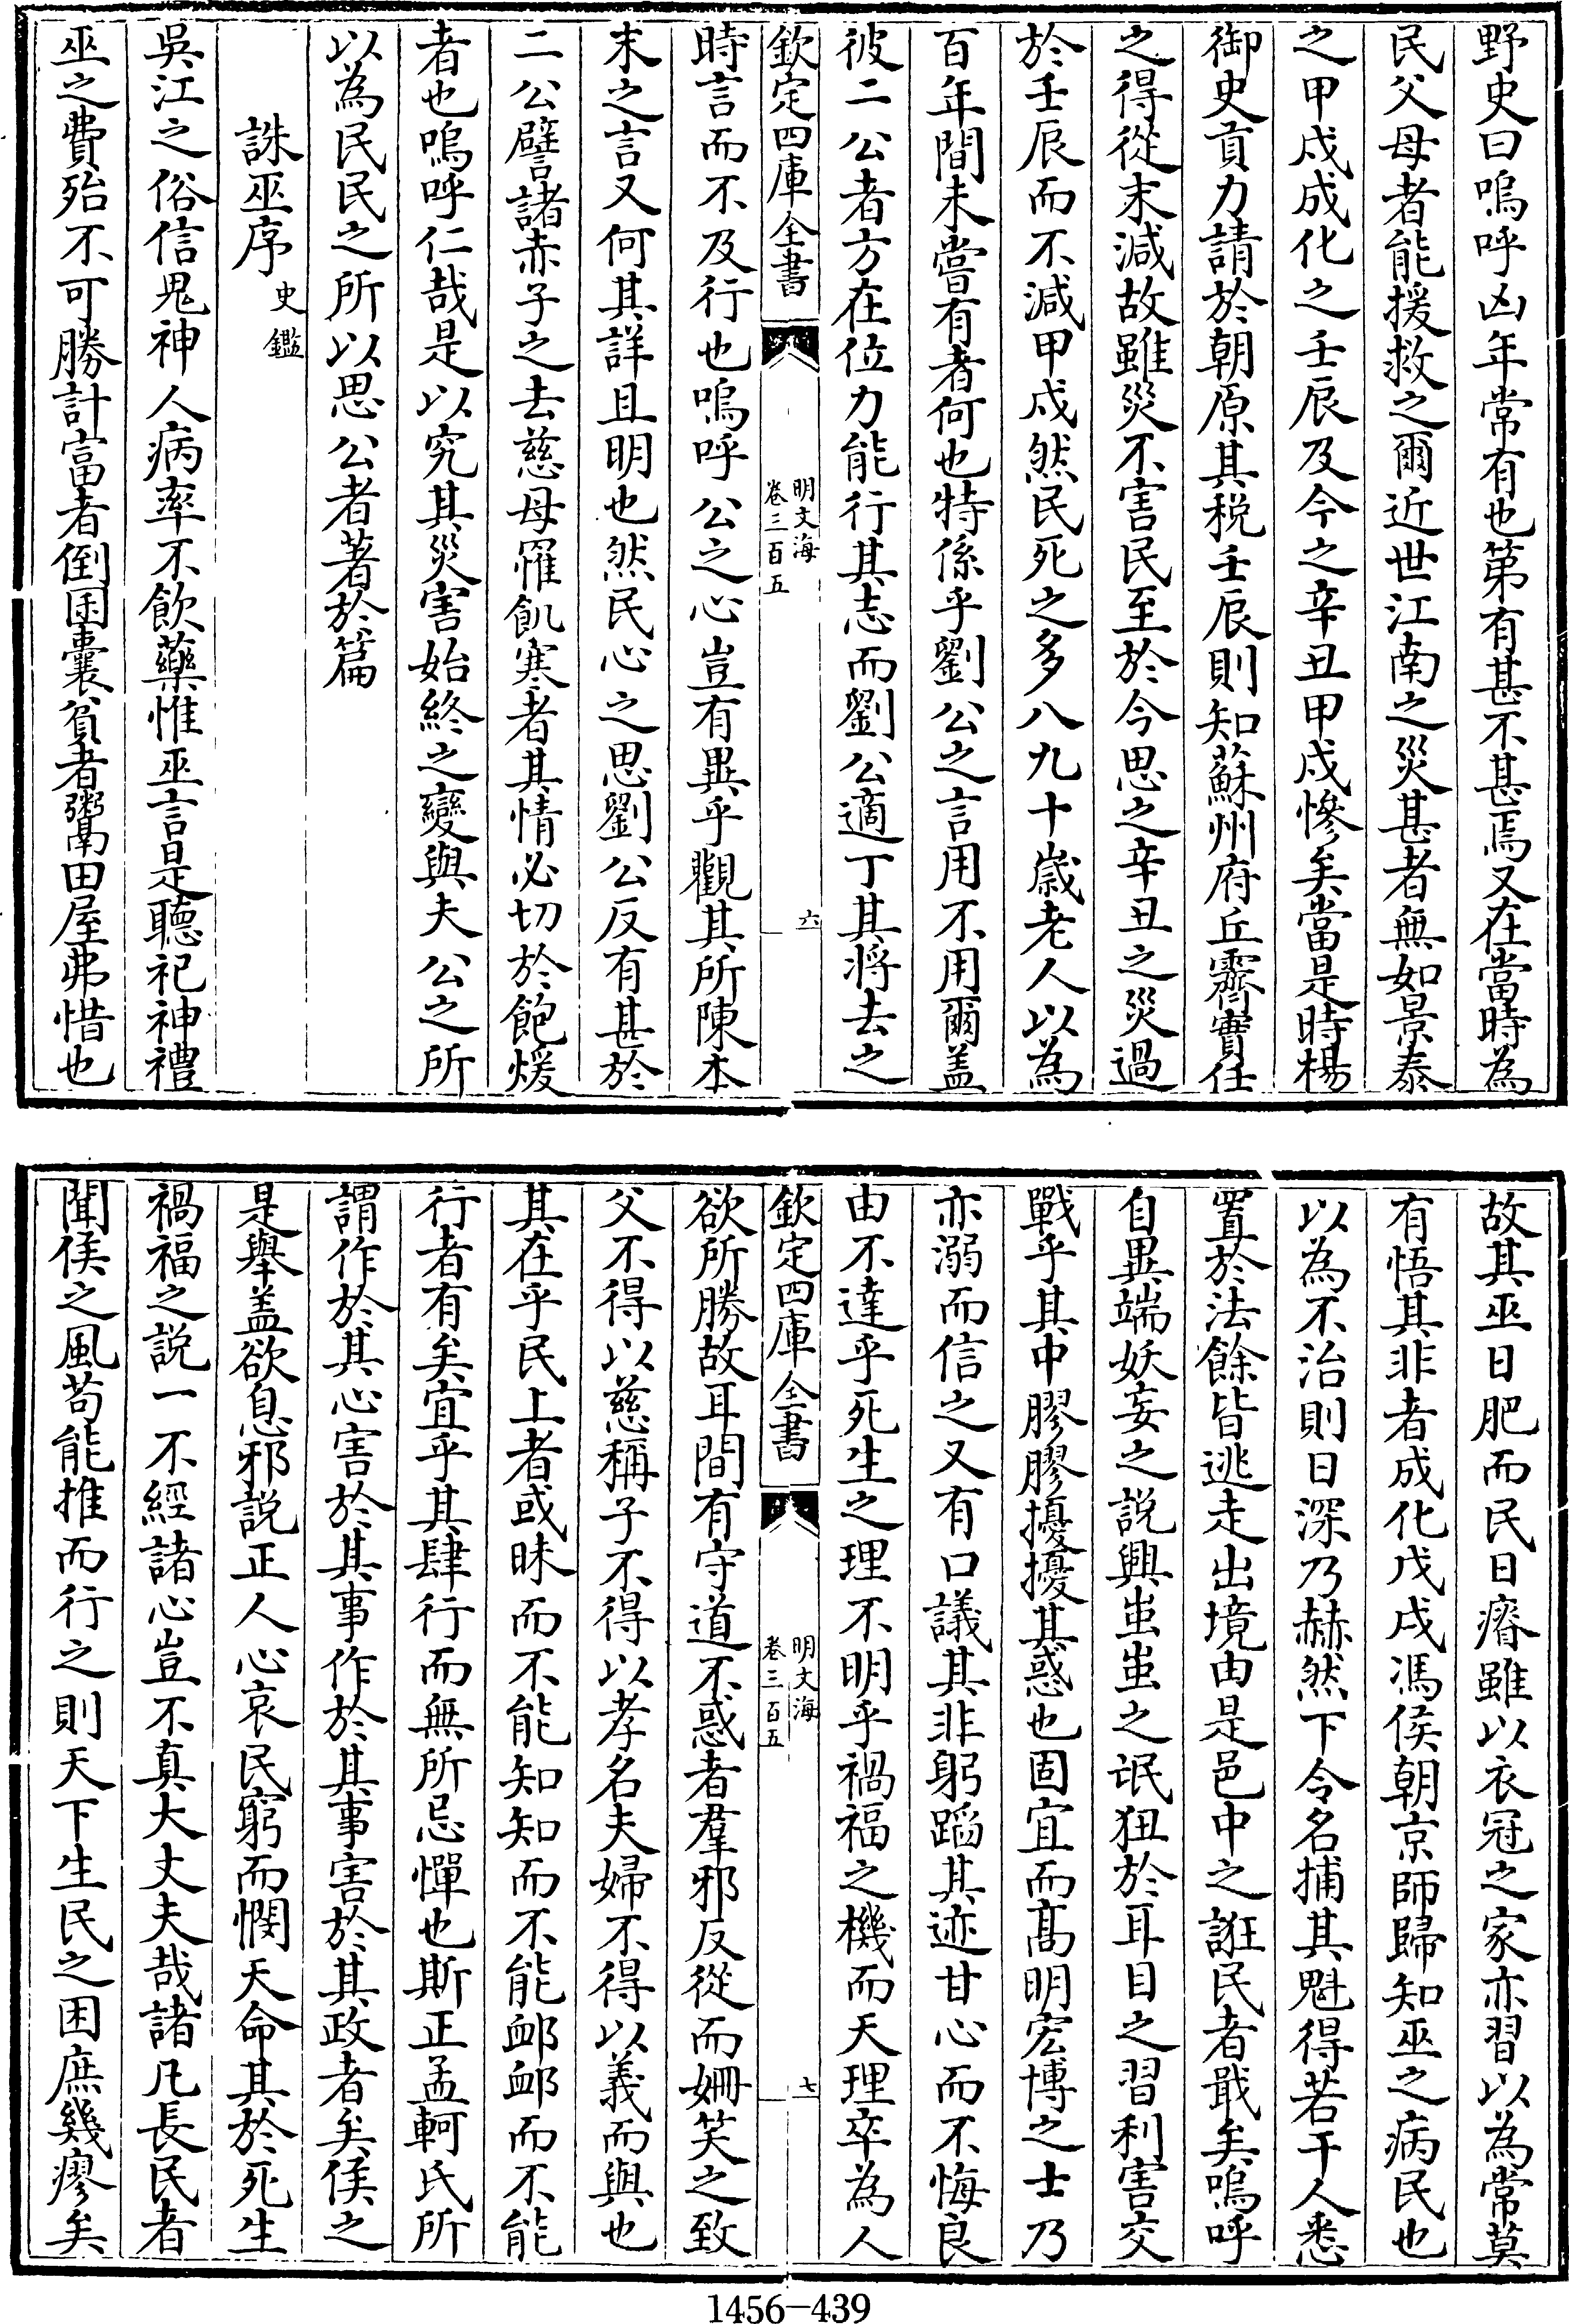 野史曰嗚呼凶年常有也第有甚不甚焉又在當時為
民父母者能援救之爾近世江南之災甚者無如景泰
之甲戍成化之壬辰及今之辛丑甲戍慘矣當是時楊
御史貢力請於朝原其税壬辰則知蘇州府丘霽實任
之得從末減故雖災不害民至於今思之辛丑之災過
於壬辰而不減甲戍然民死之多八九十嵗老人以為
百年間未嘗有者何也特係乎劉公之言用不用爾盖
彼二公者方在位力能行其志而劉公適丁其將去之
欽定四庫全書
明文海
卷三百五
六
時言而不及行也嗚呼公之心豈有異乎觀其所陳本
末之言又何其詳且明也然民心之思劉公反有甚於
二公譬諸赤子之去慈母罹飢寒者其情必切於飽煖
者也嗚呼仁哉是以究其災害始終之變與夫公之所
以為民民之所以思公者著於篇
誅巫序史鑑
吳江之俗信鬼神人病率不飲藥惟巫言是聽祀神禮
巫之費殆不可勝計富者倒囷囊貧者鬻田屋弗惜也
故其巫日肥而民日瘠雖以衣冠之家亦習以為常莫
有悟其非者成化戊戍馮侯朝京師歸知巫之病民也
以為不治則日深乃赫然下令名捕其魁得若干人悉
置於法餘皆逃走出境由是邑中之誑民者戢矣嗚呼
自異端妖妄之説興蚩蚩之氓狃於耳目之習利害交
戰乎其中膠膠擾擾其惑也固宜而髙明宏博之士乃
亦溺而信之又有口議其非躬蹈其迹甘心而不悔良
由不達乎死生之理不明乎禍福之機而天理卒為人
欽定四庫全書
明文海
卷三百五
七
欲所勝故耳間有守道不惑者羣邪反從而姍笑之致
父不得以慈稱子不得以孝名夫婦不得以義而與也
其在乎民上者或昧而不能知知而不能䘏䘏而不能
行者有矣宜乎其肆行而無所忌憚也斯正孟軻氏所
謂作於其心害於其事作於其事害於其政者矣侯之
是舉盖欲息邪説正人心哀民窮而憫天命其於死生
禍福之説一不經諸心豈不真大丈夫哉諸凡長民者
聞侯之風苟能推而行之則天下生民之困庶幾瘳矣
1456-439